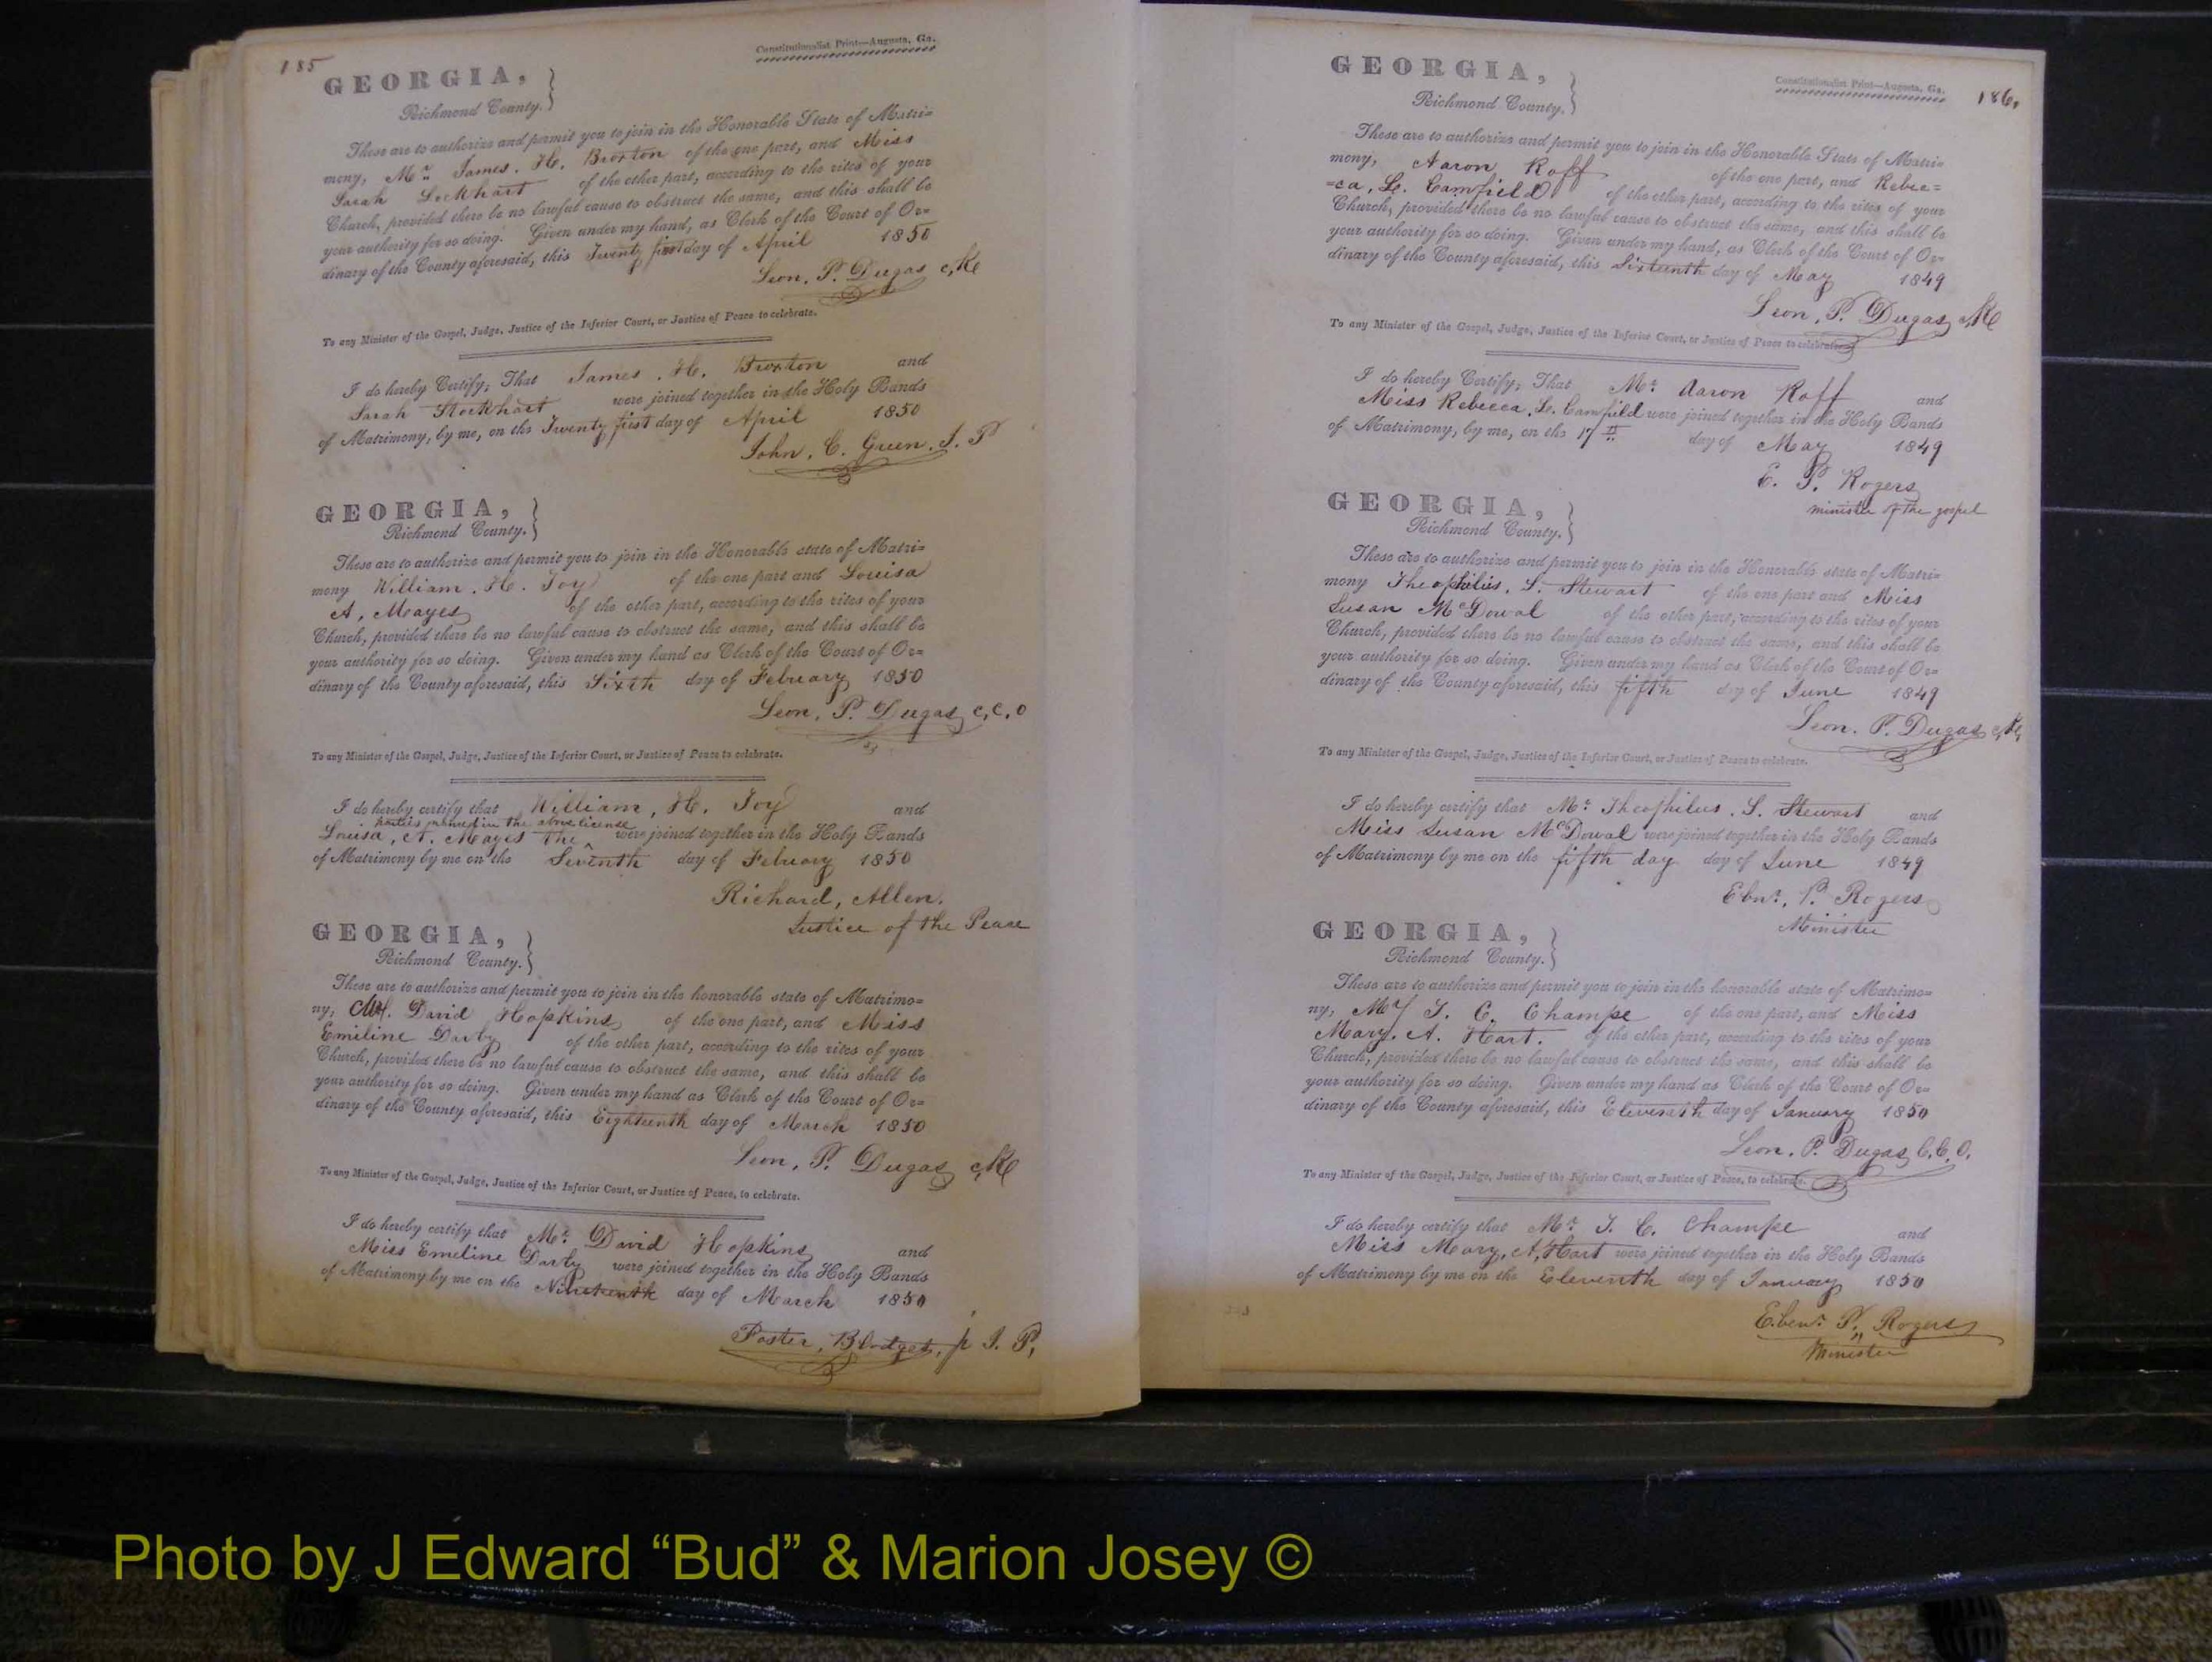 185
Constitutionalist Print—Augusta, Ga.
GEORGIA,
Richmond County.
These are to authorize and permit you to join in the Honorable State of Matri=
mony, Mr. James. H. Broxton of the one part, and Miss
Sarah of the other part, according to the rites of your
Church, provided there be no lawful cause to obstruct the same, and this shall be
your authority for so doing. Given under my hand, as Clerk of the Court of Or=
dinary of the County aforesaid, this Twenty first day of April 1850
Leon. P. Dugas
To any Minister of the Gospel, Judge, Justice of the Inferior Court, or Justice of Peace to celebrate.
I do hereby Certify, That James. H. Broxton and
Sarah were joined together in the Holy Bands
of Matrimony, by me, on the Twenty first day of April 1850
John. C. Green. J. P
GEORGIA,
Richmond County.
These are to authorize and permit you to join in the Honorable state of Matri=
mony William. H. Joy of the one part and Louisa
A, Mayes of the other part, according to the rites of your
Church, provided there be no lawful cause to obstruct the same, and this shall be
your authority for so doing. Given under my hand as Clerk of the Court of Or=
dinary of the County aforesaid, this Sixth day of February 1850
Leon. P. Dugas c, c, o
To any Minister of the Gospel, Judge, Justice of the Inferior Court, or Justice of Peace to celebrate.
I do hereby certify that William, H. Joy and
parties named in the above license
Louisa, A. Mayes the were joined together in the Holy Bands
of Matrimony by me on the Seventh day of February 1850
Richard, Allen.
Justice of the Peace
GEORGIA,
Richmond County.
These are to authorize and permit you to join in the honorable state of Matrimo=
ny, David Hopkins of the one part, and Miss
Emiline Darby of the other part, according to the rites of your
Church, provided there be no lawful cause to obstruct the same, and this shall be
your authority for so doing. Given under my hand as Clerk of the Court of Or=
dinary of the County aforesaid, this Eighteenth day of March 1850
Leon, P. Dugas
To any Minister of the Gospel, Judge, Justice of the Inferior Court, or Justice of Peace, to celebrate.
I do hereby certify that Mr. David Hopkins and
Miss Emeline Darby were joined together in the Holy Bands
of Matrimony by me on the Nineteenth day of March 1850
Foster, Blodget, J. P,
Constitutionalist Print—Augusta, Ga.
186.
GEORGIA,
Richmond County.
These are to authorize and permit you to join in the Honorable State of Matri=
mony, Aaron Roff of the one part, and Rebec=
=ca, L. Camfield of the other part, according to the rites of your
Church, provided there be no lawful cause to obstruct the same, and this shall be
your authority for so doing. Given under my hand, as Clerk of the Court of Or=
dinary of the County aforesaid, this Sixteenth day of May 1849
Leon, P. Dugas
To any Minister of the Gospel, Judge, Justice of the Inferior Court, or Justice of Peace to celebrate.
I do hereby Certify, That Mr. Aaron Roff and
Miss Rebecca. L. Camfield were joined together in the Holy Bands
of Matrimony, by me, on the 17th day of May 1849
E. P. Rogers
minister of the gospel
GEORGIA,
Richmond County.
These are to authorize and permit you to join in the Honorable state of Matri=
mony Theophilus. S. Stewart of the one part and Miss
Susan McDowal of the other part, according to the rites of your
Church, provided there be no lawful cause to obstruct the same, and this shall be
your authority for so doing. Given under my hand as Clerk of the Court of Or=
dinary of the County aforesaid, this fifth day of June 1849
Leon. P. Dugas
To any Minister of the Gospel, Judge, Justice of the Inferior Court, or Justice of Peace to celebrate.
I do hereby certify that Mr. Theophilus. S. Stewart and
Miss Susan McDowal were joined together in the Holy Bands
of Matrimony by me on the fifth day day of June 1849
Ebnr. P. Rogers
Minister
GEORGIA,
Richmond County.
These are to authorize and permit you to join in the honorable state of Matrimo=
ny, Mr J. C. Champe of the one part, and Miss
Mary. A. Hart. of the other part, according to the rites of your
Church, provided there be no lawful cause to obstruct the same, and this shall be
your authority for so doing. Given under my hand as Clerk of the Court of Or=
dinary of the County aforesaid, this Eleventh day of January 1850
Leon. P. Dugas C. C. O.
To any Minister of the Gospel, Judge, Justice of the Inferior Court, or Justice of Peace, to celebrate.
I do hereby certify that Mr. J. C. Champe and
Miss Mary. A, Hart were joined together in the Holy Bands
of Matrimony by me on the Eleventh day of January 1850
Ebenr. P. Rogers
Minister
Photo by J Edward “Bud” & Marion Josey ©